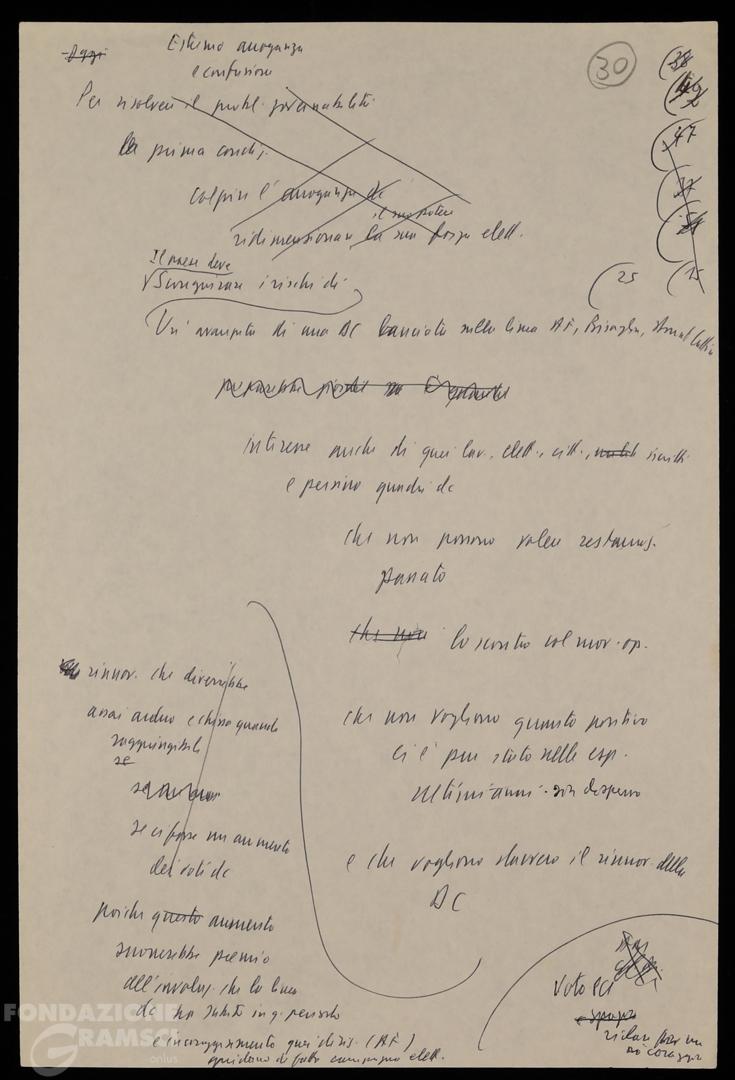 Oggi
Estrema arroganza
e confusione
30
38
47
37
25
15
Per risolvere il probl. governabilità
La prima condiz.
colpire l'arroganza dc
il suo potere
ridimensionare la sua forza elett.
Il paese deve
Scongiurare i rischi di
Un'avanzata di una DC lanciata sulla linea AF, Bisaglia, Donat Cattin
interesse anche di quei lav., elett., citt., iscritti
e persino quadri dc
che non possono volere restauraz.
passato
che non lo scontro col mov. op.
che non vogliono quanto positivo
ci è pur stato nelle esp.
ultimi anni disperso
e che vogliono davvero il rinnov. della
DC
rinnov. che diverrebbe
assai arduo e chissà quando
raggiungibile
se
se ci fosse un aumento
dei voti dc
poiché questo aumento
suonerebbe premio
all'involuz. che la linea
dc ha subito in q. periodo
e incoraggiamento quei dirig. (AF)
guidano di fatto campagna elett.
Voto PCI
FONDAZIONE
GRAMSCI
onlus